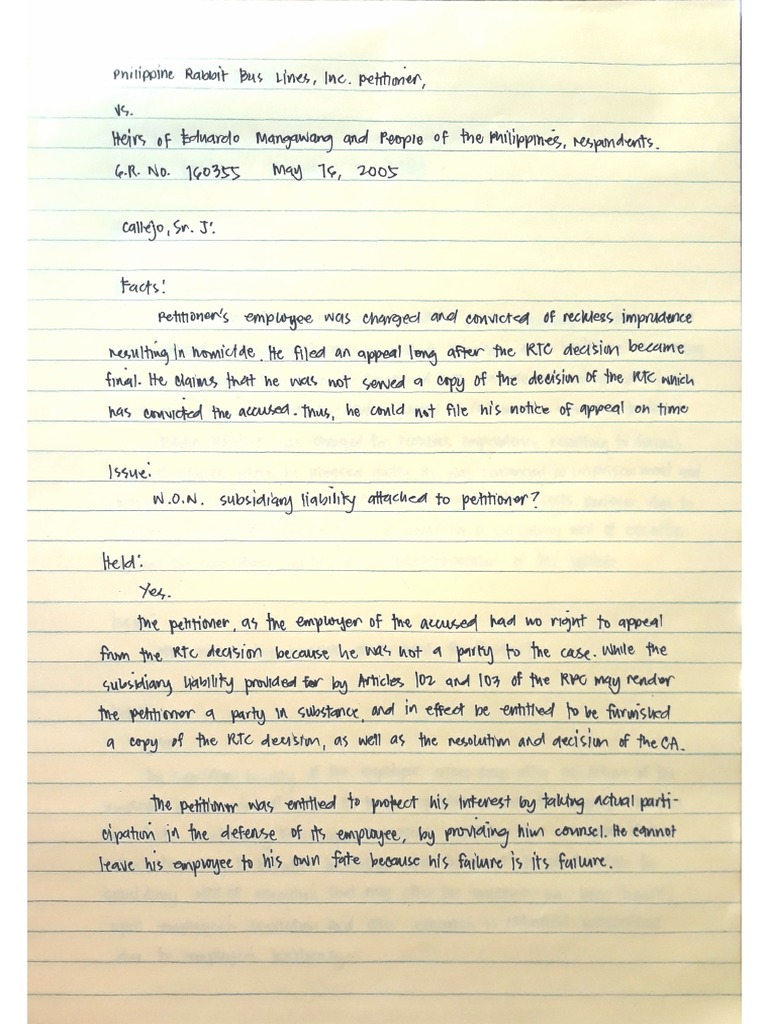 Philippine Rabbit Bus Lines, Inc. petitioner,
vs.
Heirs of Eduardo Mangawang and People of the Philippines, respondents.
G.R. No. 160355 May 16, 2005
Callejo, Sr. J:
Facts:
Petitioner's employee was charged and convicted of reckless imprudence
resulting in homicide. He filed an appeal long after the RTC decision became
final. He claims that he was not served a copy of the decision of the RTC which
has convicted the accused. Thus, he could not file his notice of appeal on time
Issue:
W.O.N. subsidiary liability attached to petitioner?
Held:
Yes.
The petitioner, as the employer of the accused had no right to appeal
from the RTC decision because he was not a party to the case. While the
subsidiary liability provided for by Articles 102 and 103 of the RPC may render
the petitioner a party in substance, and in effect be entitled to be furnished
a copy of the RTC decision, as well as the resolution and decision of the CA.
The petitioner was entitled to protect his interest by taking actual parti-
cipation in the defense of its employee, by providing him counsel. He cannot
leave his employee to his own fate because his failure is its failure.